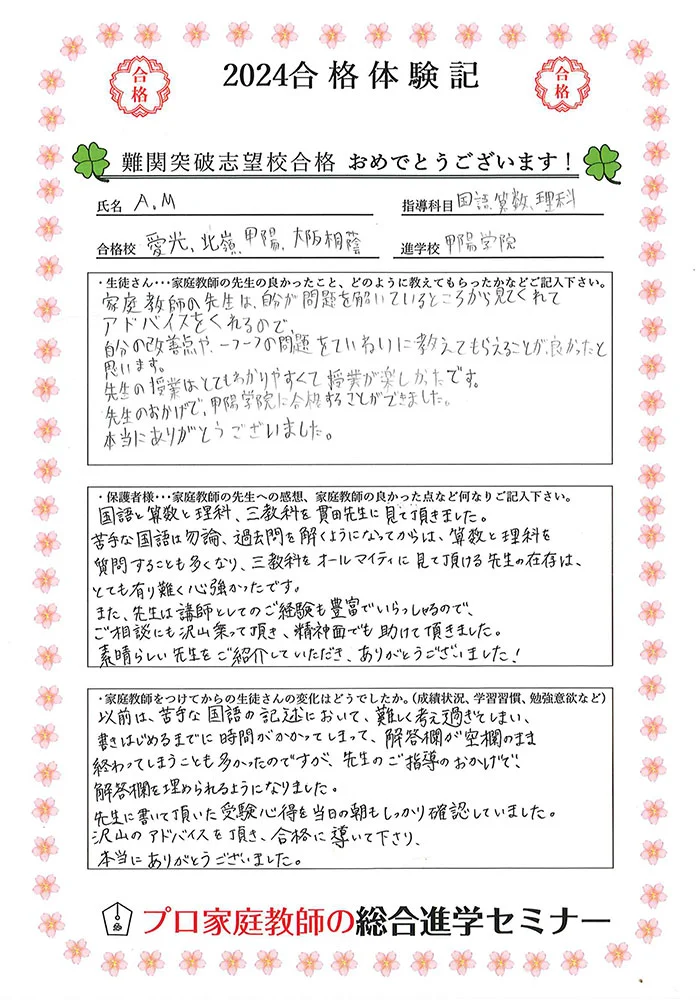 合格
2024合格体験記
合格
難関突破志望校合格 おめでとうございます！
氏名 A.M
指導科目 国語、算数、理科
合格校 愛光、北嶺、甲陽、大阪桐蔭
進学校 甲陽学院
・生徒さん･･･家庭教師の先生の良かったこと、どのように教えてもらったかなどご記入下さい。
家庭教師の先生は、自分が問題を解いているところから見てくれて
アドバイスをくれるので、
自分の改善点や、一つ一つの問題をていねいに教えてもらえることが良かったと
思います。
先生の授業はとてもわかりやすくて授業が楽しかったです。
先生のおかげで、甲陽学院に合格することができました。
本当にありがとうございました。
・保護者様･･･家庭教師の先生への感想、家庭教師の良かった点など何なりご記入下さい。
国語と算数と理科、三教科を貫田先生に見て頂きました。
苦手な国語は勿論、過去問を解くようになってからは、算数と理科を
質問することも多くなり、三教科をオールマイティに見て頂ける先生の存在は、
とても有り難く心強かったです。
また、先生は講師としてのご経験も豊富でいらっしゃるので、
ご相談にも沢山乗って頂き、精神面でも助けて頂きました。
素晴らしい先生をご紹介していただき、ありがとうございました！
・家庭教師をつけてからの生徒さんの変化はどうでしたか。（成績状況、学習習慣、勉強意欲など）
以前は、苦手な国語の記述において、難しく考え過ぎてしまい、
書きはじめるまでに時間がかかってしまって、解答欄が空欄のまま
終わってしまうことも多かったのですが、先生のご指導のおかげで、
解答欄を埋められるようになりました。
先生に書いて頂いた受験心得を当日の朝もしっかり確認していました。
沢山のアドバイスを頂き、合格に導いて下さり、
本当にありがとうございました。
プロ家庭教師の総合進学セミナー